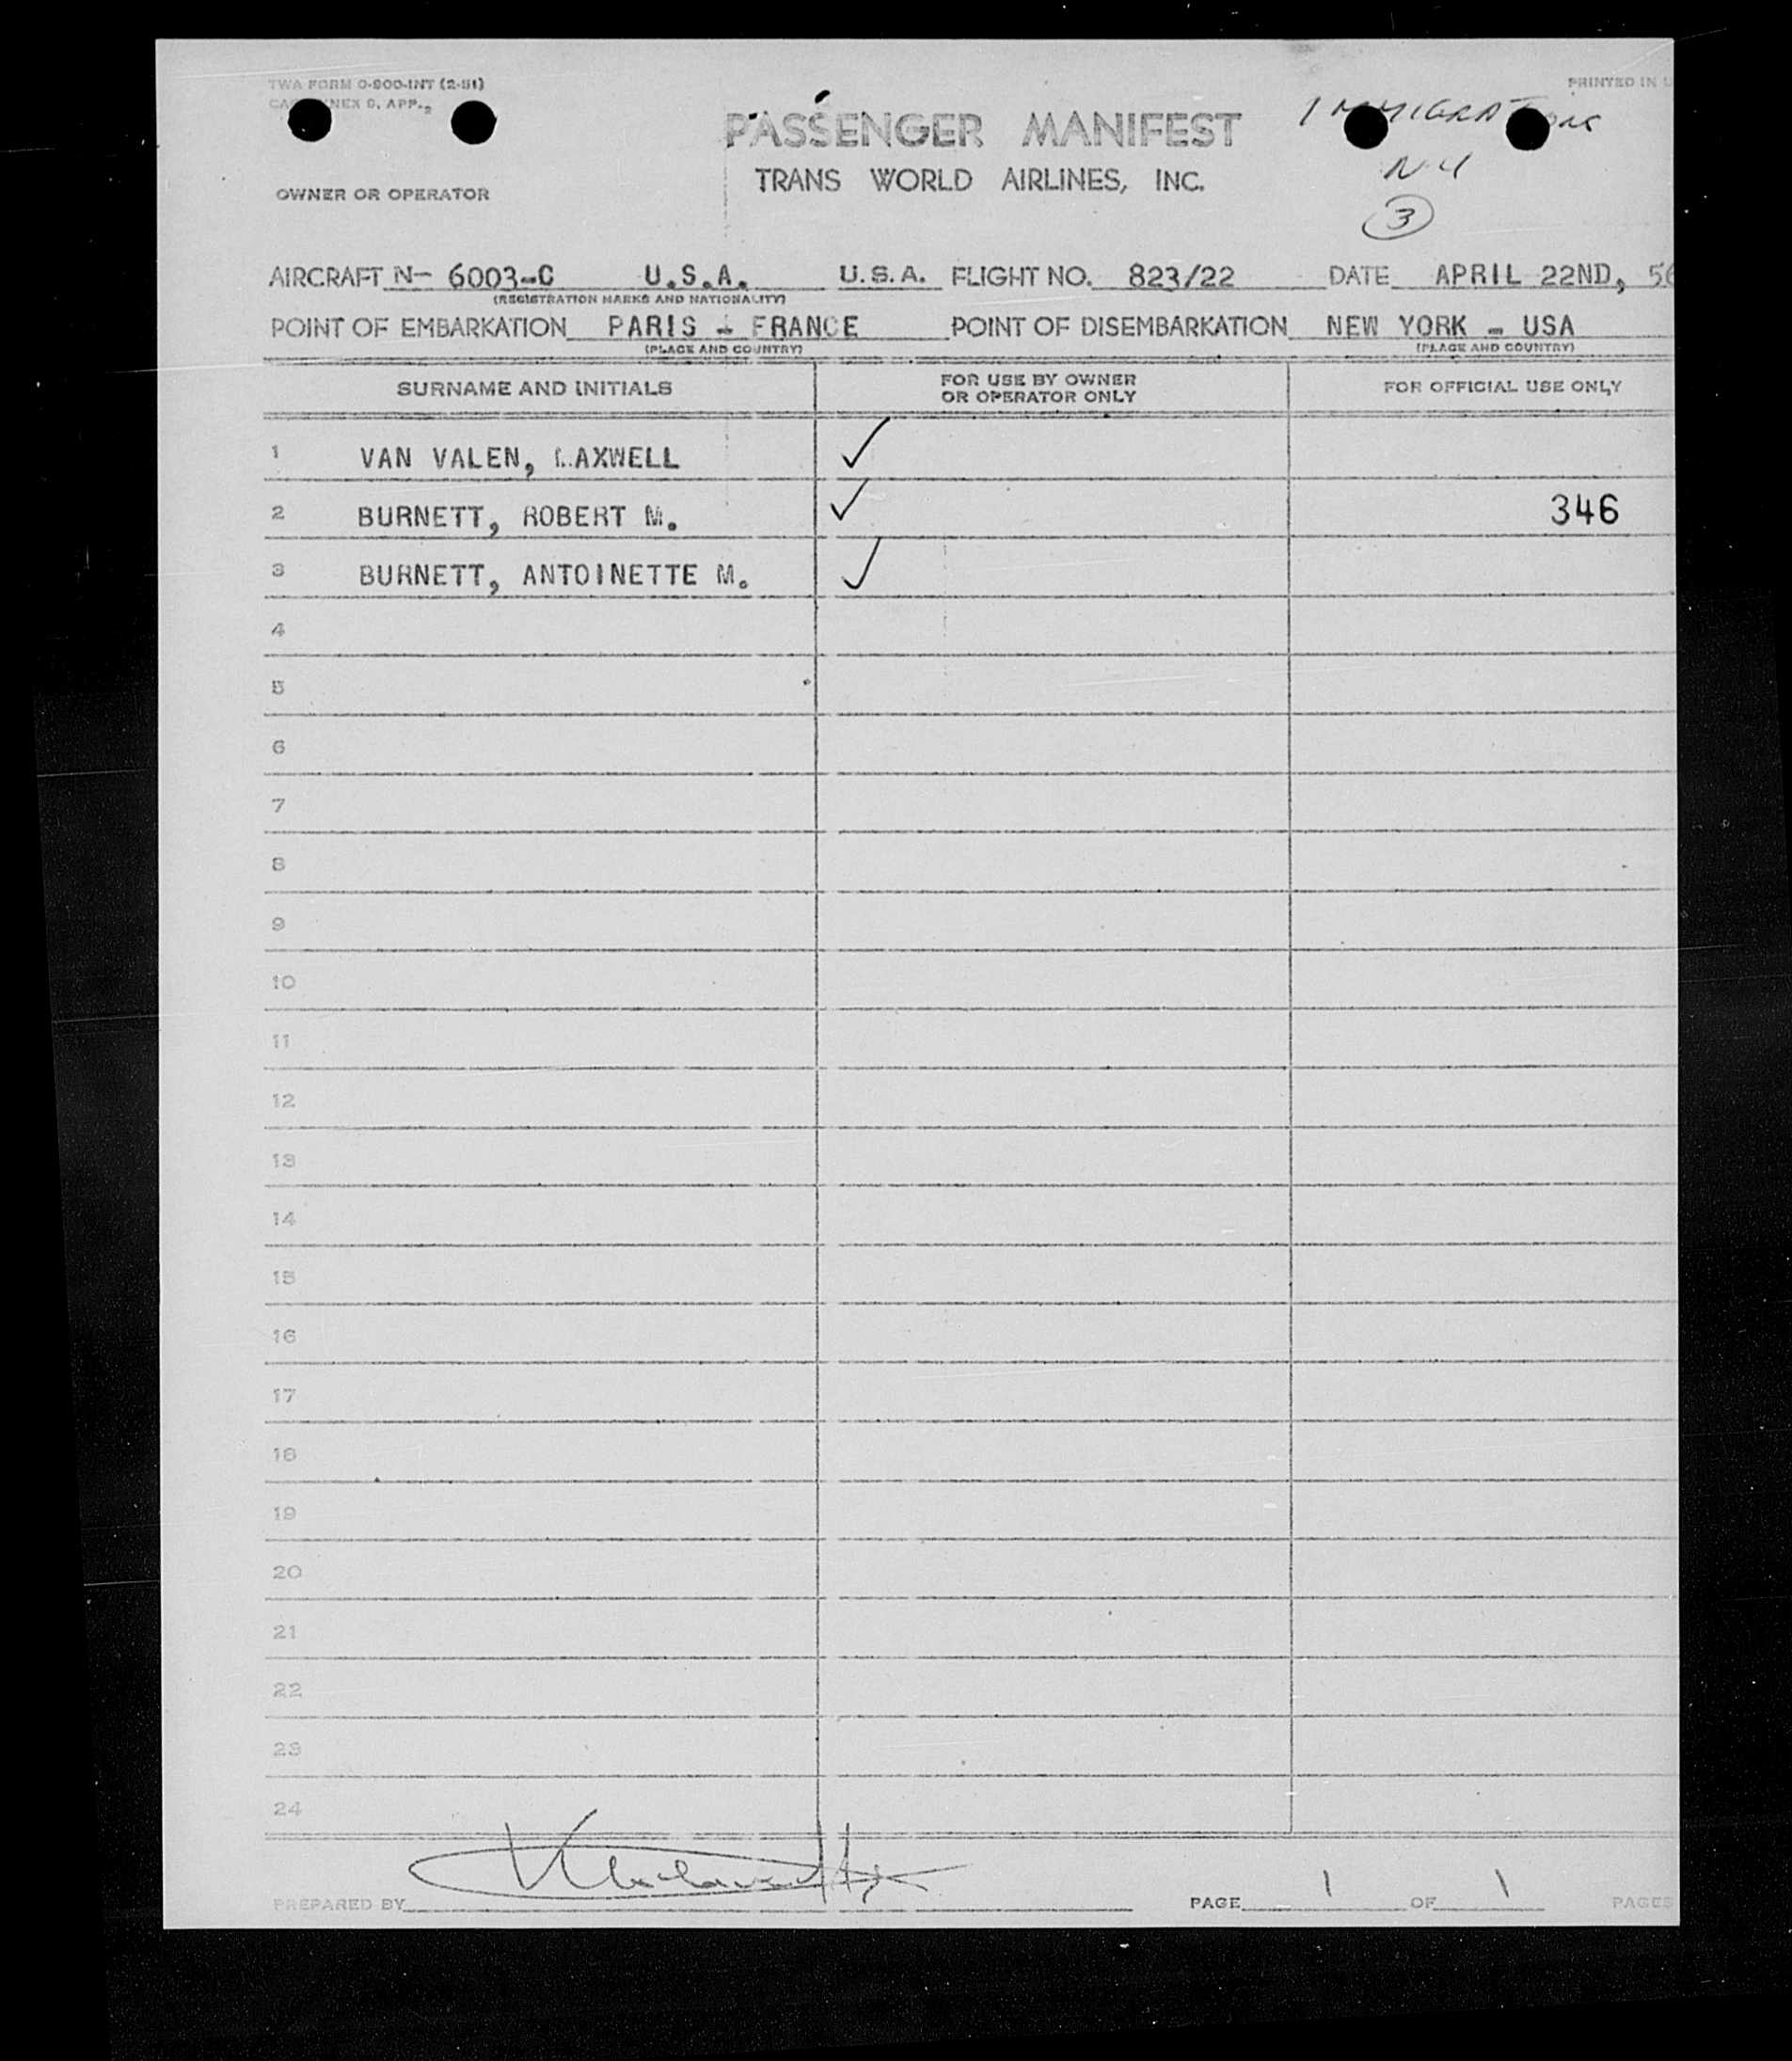 TWA FORM O-900-INT (2-51)
PRINTED IN U
ANNEX 9, APP. 2
PASSENGER MANIFEST
IMMIGRATIONS
TRANS WORLD AIRLINES, INC.
NY
OWNER OR OPERATOR
3
AIRCRAFT N- 6003-C U.S.A. U.S.A. FLIGHT NO. 823/22 DATE APRIL 22ND, 56
(REGISTRATION MARKS AND NATIONALITY)
POINT OF EMBARKATION PARIS - FRANCE POINT OF DISEMBARKATION NEW YORK - USA
(PLACE AND COUNTRY) (PLACE AND COUNTRY)
SURNAME AND INITIALS FOR USE BY OWNER OR OPERATOR ONLY FOR OFFICIAL USE ONLY
1 VAN VALEN, MAXWELL ✓
2 BURNETT, ROBERT M. ✓ 346
3 BURNETT, ANTOINETTE M. ✓
4
5
6
7
8
9
10
11
12
13
14
15
16
17
18
19
20
21
22
23
24
PREPARED BY PAGE 1 OF 1 PAGES